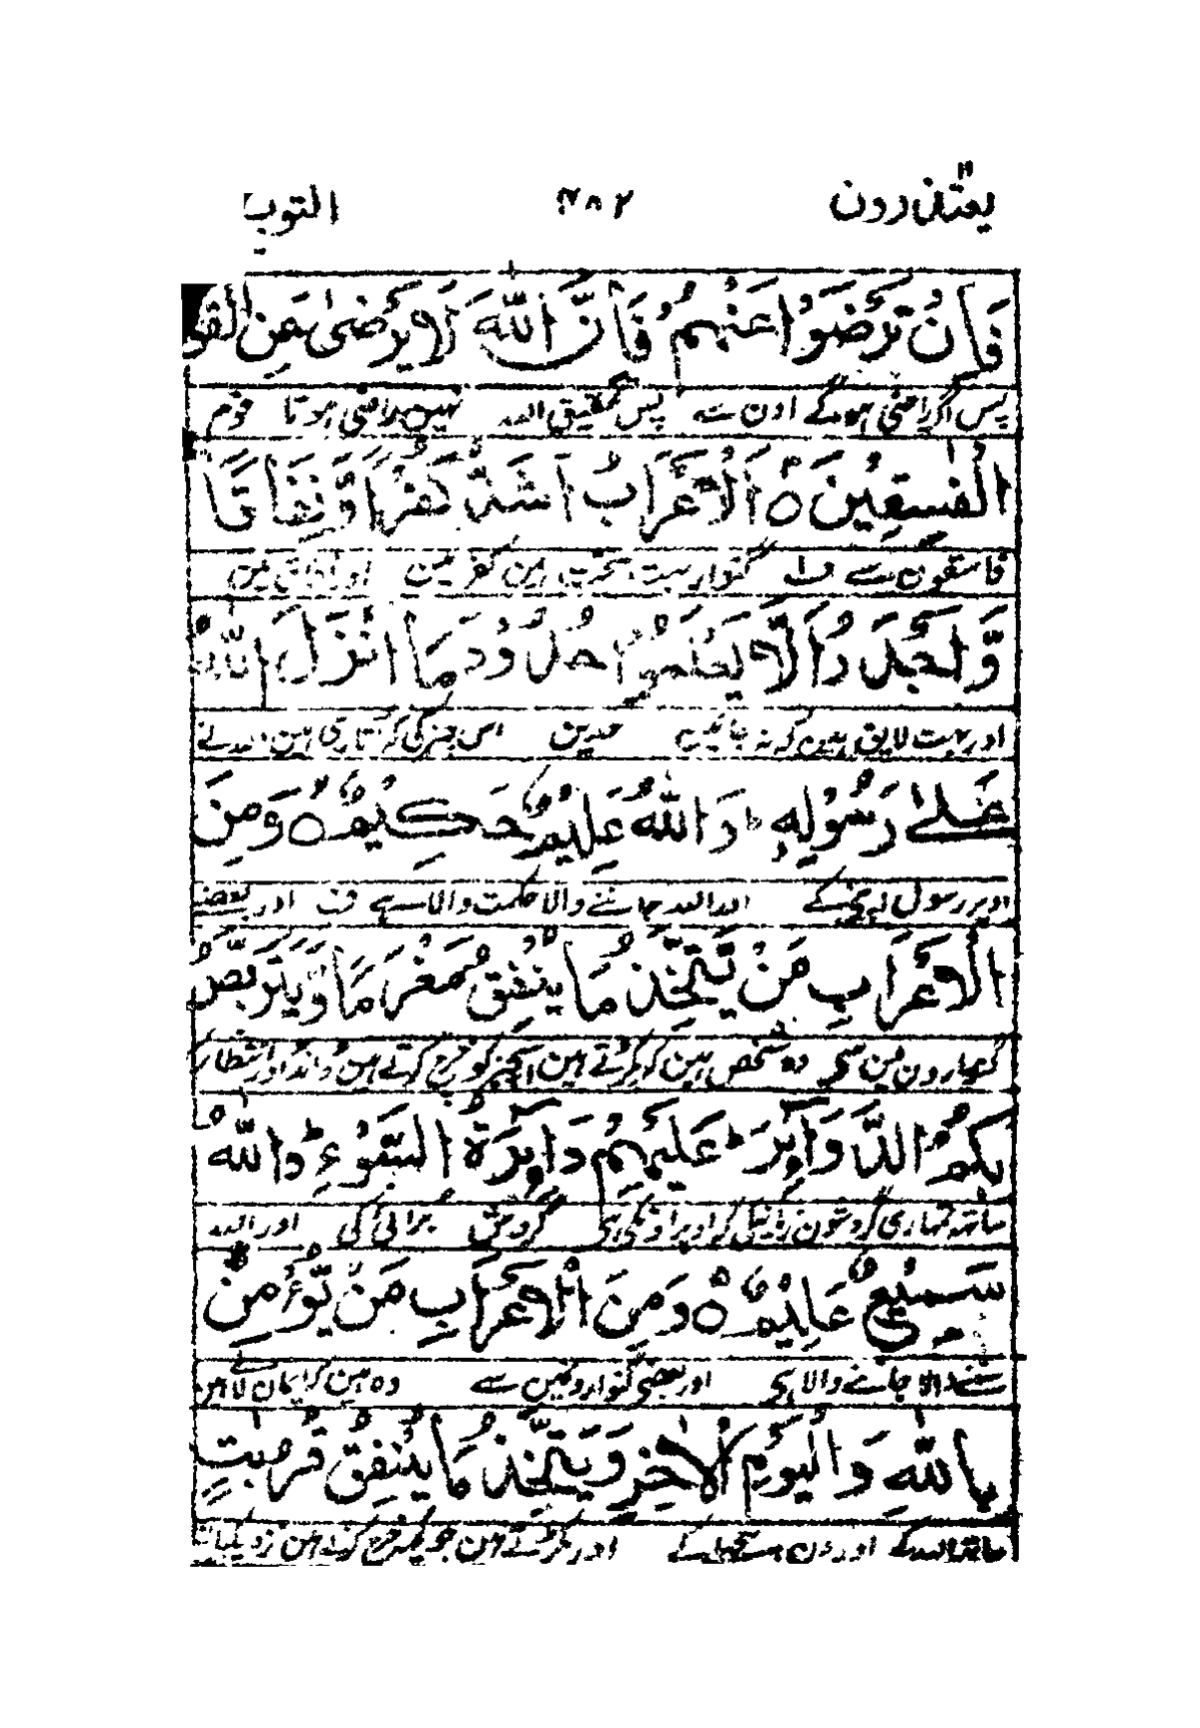 یعتذرون ۲۸۲ التوبہ
فَاِنْ تَرْضَوْا عَنْهُمْ فَاِنَّ اللّٰهَ لَا یَرْضٰی عَنِ الْقَوْ
پس اگر راضی ہوگے اون سے پس تحقیق اللہ نہین راضی ہوتا قوم
الْفٰسِقِیْنَ ○ اَلْاَعْرَابُ اَشَدُّ كُفْرًا وَّنِفَاقًا
فاسقون سے ف گنوار بہت سخت ہین کفر مین اور نفاق مین
وَّاَجْدَرُ اَلَّا یَعْلَمُوْا حُدُوْدَ مَا اَنْزَلَ اللّٰهُ
اور بہت لایق ہین کہ نہ جانین حدین اس چیز کی کہ اتاری ہین اللہ نے
عَلٰی رَسُوْلِهٖ ؕ وَاللّٰهُ عَلِیْمٌ حَكِیْمٌ ○ وَمِنَ
اوپر رسول اپنے کے اور اللہ جاننے والا حکمت والا ہے ف اور بعضے
الْاَعْرَابِ مَنْ یَّتَّخِذُ مَا یُنْفِقُ مَغْرَمًا وَّیَتَرَبَّصُ
گنوارون مین سے وہ شخص ہین کہ پکڑتے ہین اسچیز کو خرچ کرتے ہین ڈانڈ اور انتظار
بِكُمُ الدَّوَآئِرَ ؕ عَلَیْهِمْ دَآئِرَةُ السَّوْءِ ؕ وَاللّٰهُ
ساتھ تمہاری گردشون اوپر اونکی ہی گردش برائی کی اور اللہ
سَمِیْعٌ عَلِیْمٌ ○ وَمِنَ الْاَعْرَابِ مَنْ یُّؤْمِنُ
سننے والا جاننے والا ہی اور بعضی گنوارون مین سے وہ ہین کہ ایمان لاتے ہین
بِاللّٰهِ وَالْیَوْمِ الْاٰخِرِ وَیَتَّخِذُ مَا یُنْفِقُ قُرُبٰتٍ
ساتھ اللہ کے اور دن پچھلے کے اور پکڑتے ہین جو کچھ خرچ کرتے ہین نزدیکیان